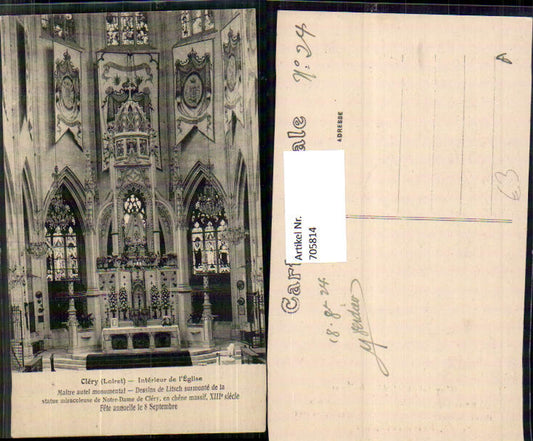 Cléry (Loiret) — Intérieur de l'Église
Maître autel monumental — Dessins de Litsch surmonté de la
statue miraculeuse de Notre-Dame de Cléry, en chêne massif, XIIIe siècle
Fête annuelle le 8 Septembre
Artikel Nr.
705814
ADRESSE
N° 24
63